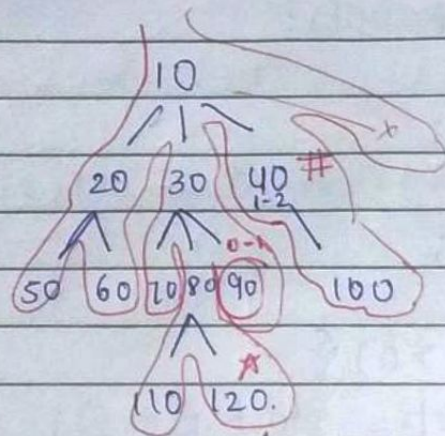 10
20 30 40 #
1-2
0-1
50 60 70 80 90 100
110 120.